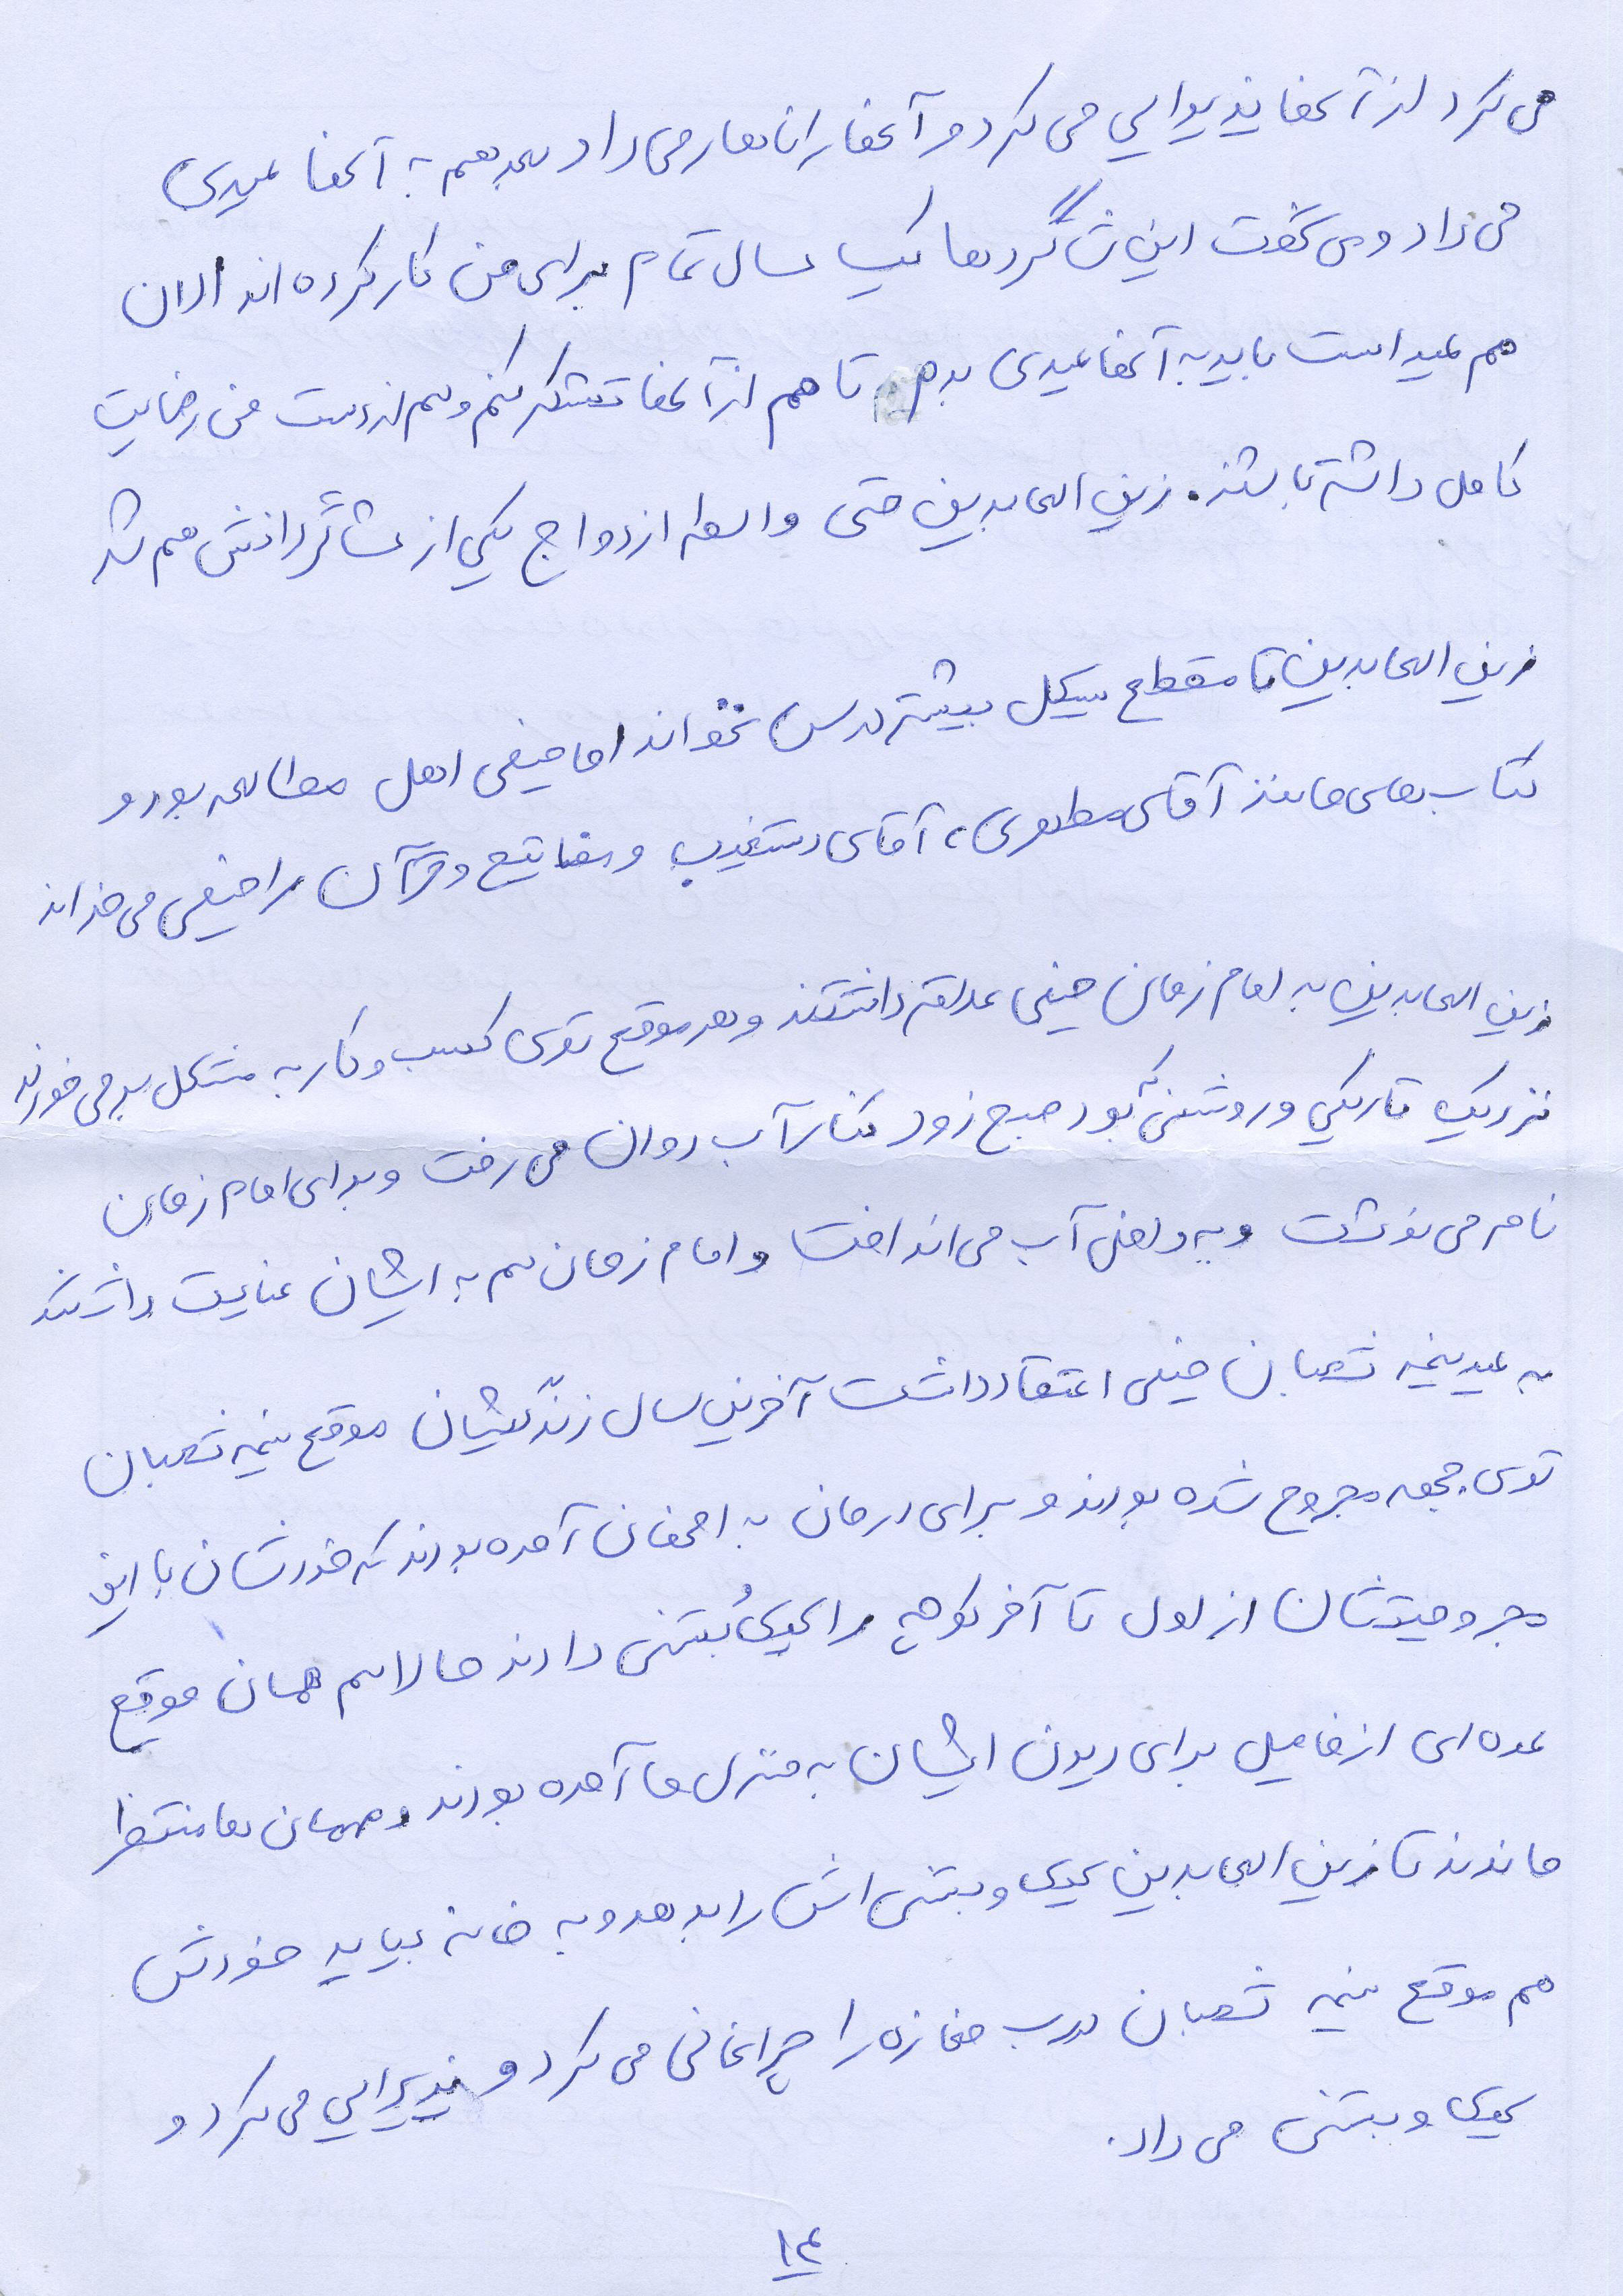 می کرد از آنها پذیرایی می کرد و آنها را ناهار می داد بعد هم به آنها عیدی
می داد و می گفت این شاگردها یک سال تمام برای من کار کرده اند الان
هم عید است باید به آنها عیدی بدهم تا هم از آنها تشکر کنم و هم از دست من رضایت
کامل داشته باشند. زین العابدین حتی واسطه ازدواج یکی از شاگردانش هم شد
زین العابدین تا مقطع سیکل بیشتر درس نخواند اما خیلی اهل مطالعه بود و
کتاب های مانند آقای مطهری، آقای دستغیب و مفاتیح و قرآن را خیلی می خواند
زین العابدین به امام زمان خیلی علاقه داشتند و هر موقع توی کسب و کار به مشکل بر می خورند
نزدیک تاریکی و روشنی که بود صبح زود کنار آب روان می رفت و برای امام زمان
نامه می نوشت و به داخل آب می انداخت و امام زمان هم به ایشان عنایت داشتند
به عید نیمه شعبان خیلی اعتقاد داشت آخرین سال زندگیشان موقع نیمه شعبان
توی جبهه مجروح شده بودند و برای درمان به اصفهان آمده بودند که خودشان با این
مجروحیتشان از اول تا آخر کوچه را چای بستنی دادند حالا هم همان موقع
عده ای از فامیل برای دیدن ایشان به منزل ما آمده بودند و مهمان ها منتظر
ماندند تا زین العابدین چای و بستنی اش را بدهد و به خانه بیاید خودش
هم موقع نیمه شعبان درب مغازه را چراغانی می کرد و پذیرایی می کرد و
چای و بستنی می داد.
۱۴